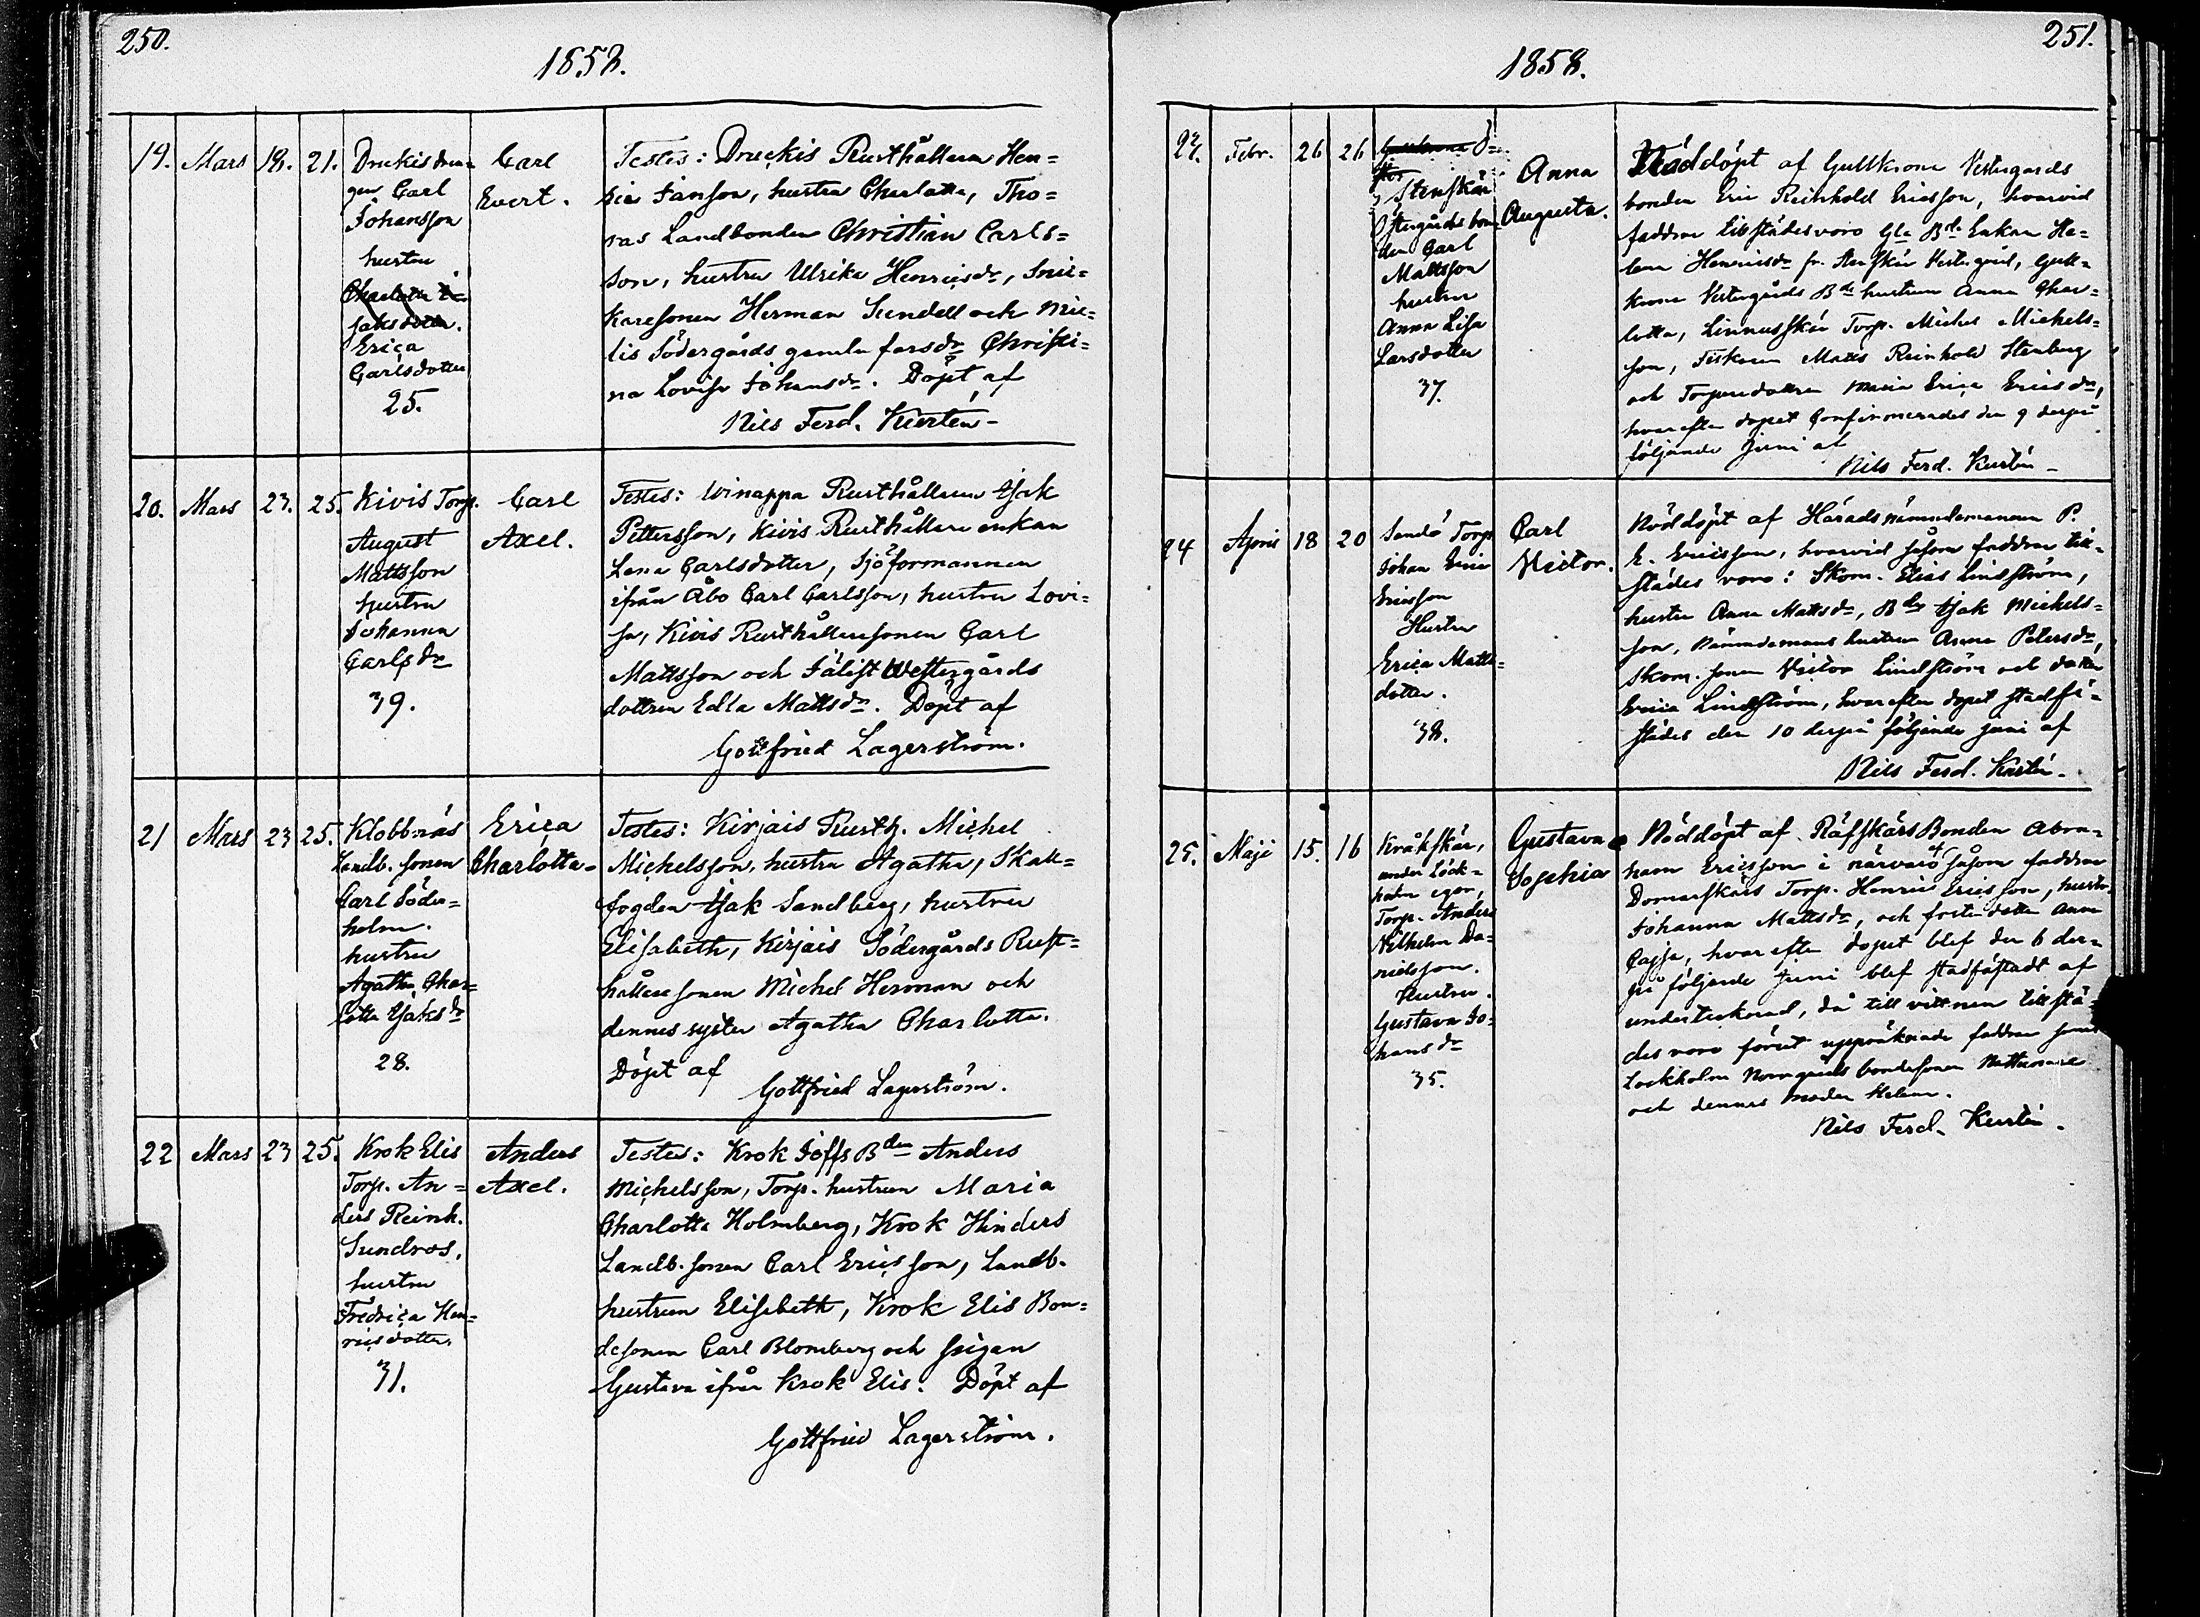 250.
1858.
19. Mars 18. 21.
Druckis drän=
gen Carl
Johansson
hustru
Charlotta I=
saksdotter.
Erica
Carlsdotter
25.
Carl
Evert.
Testes: Druckis Rusthållaren Hen=
ric Janson, hustru Charlotta, Tho=
ras Landbonden Christian Carls=
son, hustru Ulrika Henricsdr,
Karesonen Herman Sundell och
lis Södergårds gamla farsdr Christi=
na Lovisa Johansdr. Döpt af
Nils Ferd. Kurtén
20. Mars 23. 25.
Kivis Torp.
August
Mattsson
hustru
Johanna
Carlsdr
39.
Carl
Axel.
Testes: Winappa Rusthållaren Isak
Pettersson, Kivis Rusthållare enkan
Lena Carlsdotter, Sjöformannen
ifrån Åbo Carl Carlsson, hustru Lovi=
sa, Kivis Rusthållaresonen Carl
Mattsson och Fälist Westergårds
dottren Edla Mattsdr. Döpt af
Gottfried Lagerström.
21 Mars 23 25.
Klobbnäs
Landb. sonen
Carl Söder=
holm.
hustru
Agatha Char=
lotta Isaksdr
28.
Erica
Charlotta
Testes: Kirjais Rusth. Michel
Michelsson, hustru Agatha, Skall=
fogden Isak Sandberg, hustru
Elisabeth, Kirjais Södergårds Rust=
hållaresonen Michel Herman och
dennes syster Agatha Charlotta.
Döpt af
Gottfried Lagerström.
22 Mars 23 25.
Krok Elis
Torp. An=
ders Reinh.
Sundros,
hustru
Fredrica Hen=
ricsdotter.
31.
Anders
Axel.
Testes: Krok Joffs Bden Anders
Michelsson, Torp. hustrun Maria
Charlotta Holmberg, Krok Hinders
Landb. sonen Carl Ericsson, Landb.
hustrun Elisabeth, Krok Elis Bon=
desonen Carl Blomberg och pigan
Gustava ifrån Krok Elis. Döpt af
Gottfried Lagerström.
251.
1858.
23. Febr. 26 26
Stenskär
Östergårds bon=
den Carl
Mattsson
hustru
Anna Lisa
Larsdotter
37.
Anna
Augusta.
Nöddöpt af Gullkrona Vestergårds
bonden Eric Reinhold Ericsson, hvarvid
faddrar tillstädes voro Gla Bde Enkan He=
lena Henricsdr fr. Stenskär Vestergård, Gull=
krona Vestergårds Bde hustrun Anna Char=
lotta, Linnusskär Torp. Michel Michels=
son, Fiskaren Matts Reinhold Stenberg
och Torparedottren Maria Erica Ericsdr,
hvarefter dopet Confirmerades den 9 derpå
följande Juni af
Nils Ferd. Kurtén
24 April 18 20
Sandö Torp.
Johan Eric
Ericsson
Hustru
Erica Matts=
dotter.
38.
Carl
Victor.
Nöddöpt af Häradsnämndemannen P.
E. Ericsson, hvarvid såsom faddrar till=
städes voro: Skom. Elias Lindström,
hustru Anna Mattsdr, Bde Isak Michels=
son, Nämndemans hustrun Anna Petersdr,
Skom. sonen Victor Lindström och dotter
Erica Lindström, hvarefter dopet stadfä=
stades den 10 derpå följande Juni af
Nils Ferd. Kurtén.
25. Maji 15. 16
Kråkskär,
under Lock=
holm egor,
Torp. Anders
Vilhelm Da=
nielsson.
Hustru.
Gustava Jo=
hansdr
35.
Gustava
Sophia
Nöddöpt af Räfskärs Bonden Abra=
ham Ericsson i närvaro af såsom faddrar
Domarskärs Torp. Henric Ericsson, hustr.
Johanna Mattsdr, och fosterdotter Anna
Cajsa, hvarefter dopet blef den 6 der=
på följande Juni blef stadfästadt af
undertecknad, då till vittnen tillstä=
des voro förut uppräknade faddrar samt
Lockholm Norrgårds bondesonen
och dennes moder Helena.
Nils Ferd. Kurtén.